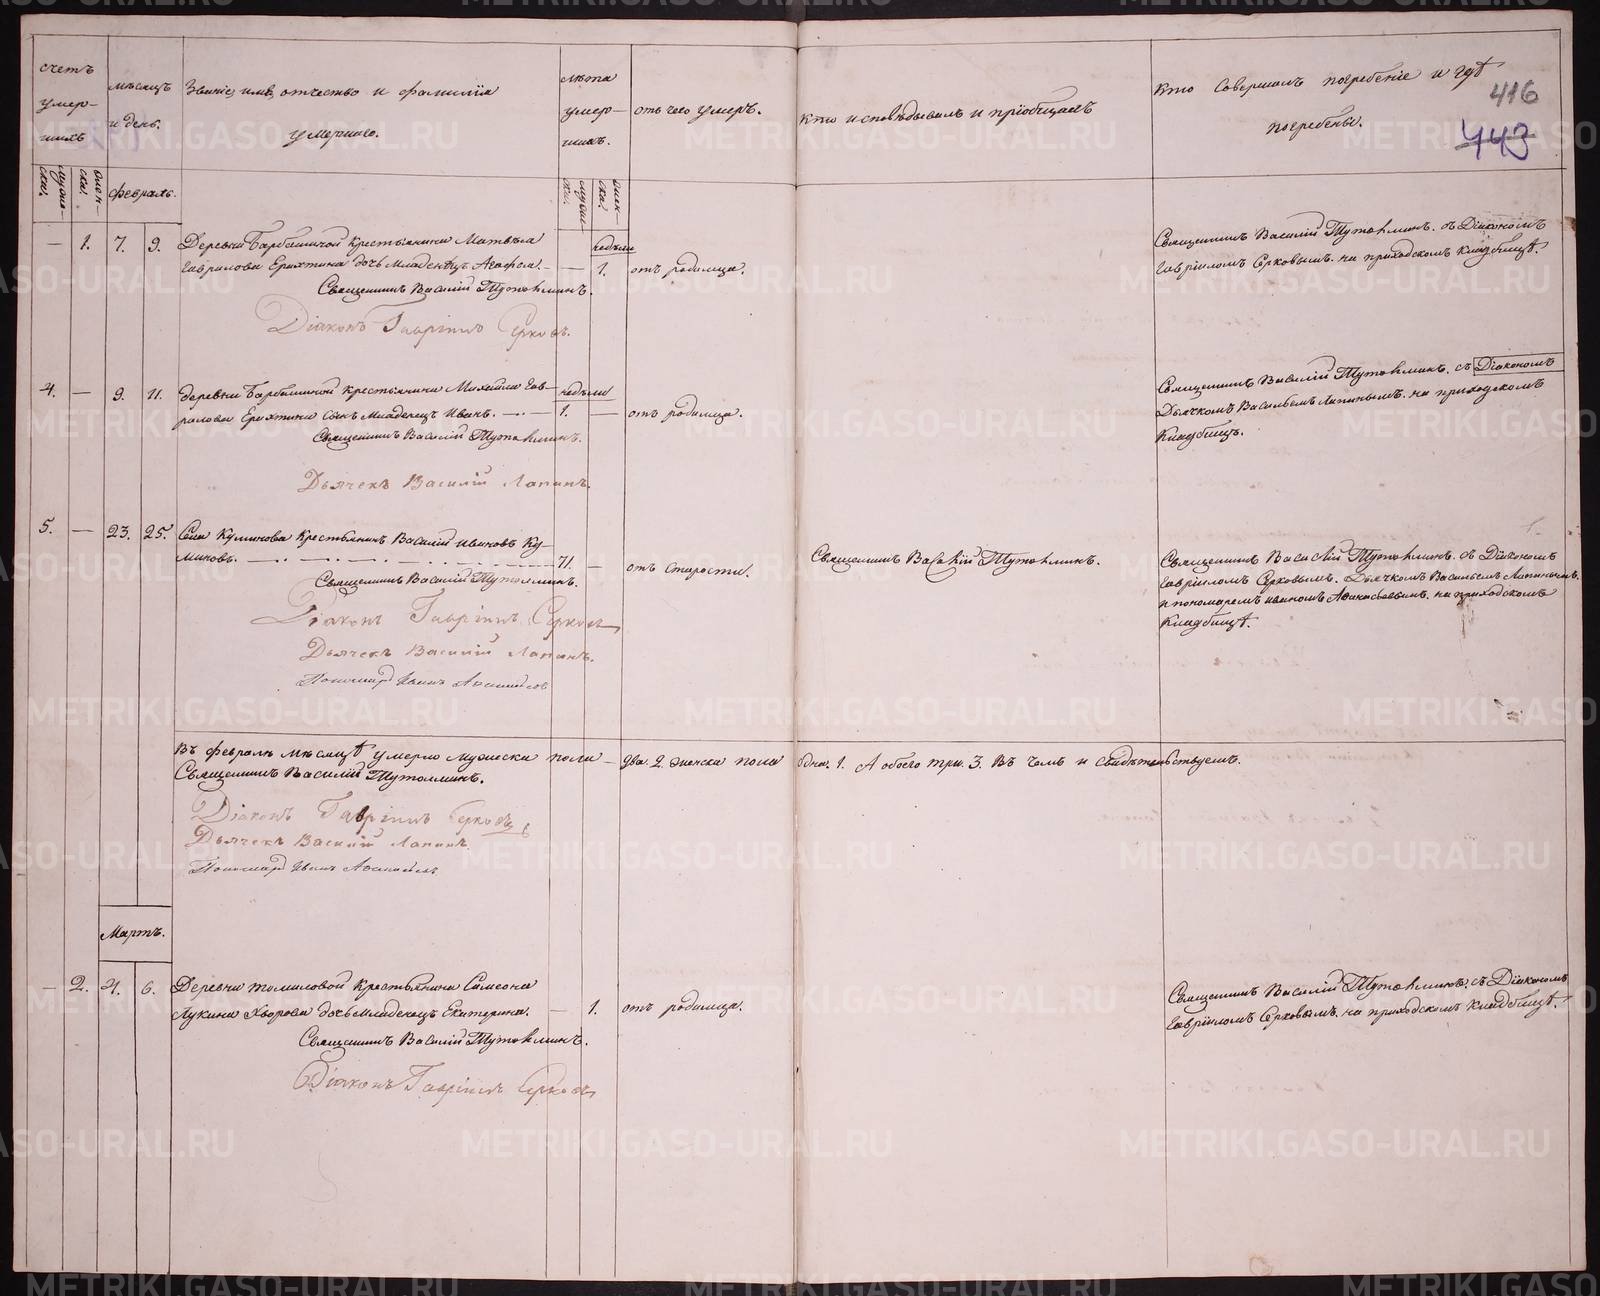 счетъ умер- шихъ
мѣсяцъ и день.
Званіе, имя, отчество и фамилія
умершаго.
лѣта умер- шихъ.
отъ чего умеръ.
кто исповѣдывалъ и пріобщалъ
кто совершалъ погребеніе и гдѣ
погребены.
416
443
мужес- ка.
женс- ка.
февраль.
мужес ка.
женс- ка.
— 1. 7. 9. Деревни Барбашиной крестьянина Матвѣя
недѣли
Гаврилова Ерихтина дочь младенецъ Агафья. — — 1. отъ родимца.
Священникъ Василій Тутолминъ. съ Діакономъ
Гавріиломъ Серковымъ. на приходскомъ кладбищѣ.
Священникъ Василій Тутолминъ.
Діаконъ Гавріилъ Серковъ.
4. — 9. 11. деревни Барбашиной крестьянина Михайла Гав-
недѣли
рилова Ерихтина сынъ младенецъ Иванъ. — 1. — отъ родимца.
Священникъ Василій Тутолминъ. съ Діакономъ
Дьячкомъ Васильемъ Лапинымъ. на приходскомъ
Кладбищѣ.
Священникъ Василій Тутолминъ.
Дьячекъ Василій Лапинъ.
5. — 23. 25. Села Куминова крестьянинъ Василій Ивановъ Ку-
миновъ. 71. — отъ старости.
Священникъ Василій Тутолминъ.
Священникъ Василій Тутолминъ. съ Діакономъ
Гавріиломъ Серковымъ. Дьячкомъ Васильемъ Лапинымъ.
и пономаремъ Иваномъ Афанасьевымъ. на приходскомъ
Кладбищѣ.
Священникъ Василій Тутолминъ.
Діаконъ Гавріилъ Серковъ
Дьячекъ Василій Лапинъ.
Пономарь Иванъ Афанасьевъ
Въ февралѣ мѣсяцѣ умерло мужеска пола — два. 2. женска пола одна. 1. А обоего три. 3. Въ чемъ и свидѣтельствуемъ.
Священникъ Василій Тутолминъ.
Діаконъ Гавріилъ Серковъ
Дьячекъ Василій Лапинъ
Пономарь Иванъ Афанасьевъ
Мартъ.
— 2. 4. 6. Деревни Томиловой крестьянина Симеона
Лукина Яворова дочь младенецъ Екатерина. — 1. отъ родимца.
Священникъ Василій Тутолминъ. съ Діакономъ
Гавріиломъ Серковымъ. на приходскомъ Кладбищѣ.
Священникъ Василій Тутолминъ.
Діаконъ Гавріилъ Серковъ
METRIKI.GASO-URAL.RU